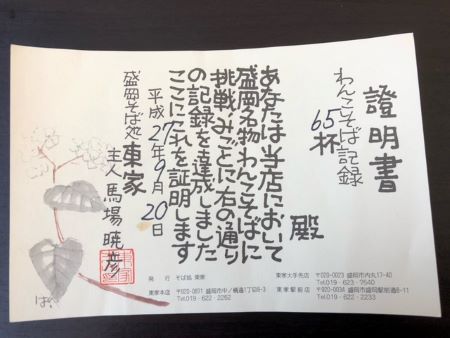 證明書
わんこそば記録
65杯
殿
あなたは当店において
盛岡名物わんこそばに
挑戦、みごとに右の通り
の記録を達成しました
ここにこれを証明します
平成27年9月20日
盛岡そば処 東家
主人 馬場暁彦
発行 そば処 東家
東家本店 〒020-0871 盛岡市中ノ橋通1丁目8-3
Tel.019-622-2252
東家大手先店 〒020-0023 盛岡市内丸17-40
Tel.019-623-7540
東家駅前店 〒020-0034 盛岡市盛岡駅前通8-11
Tel.019-622-2233